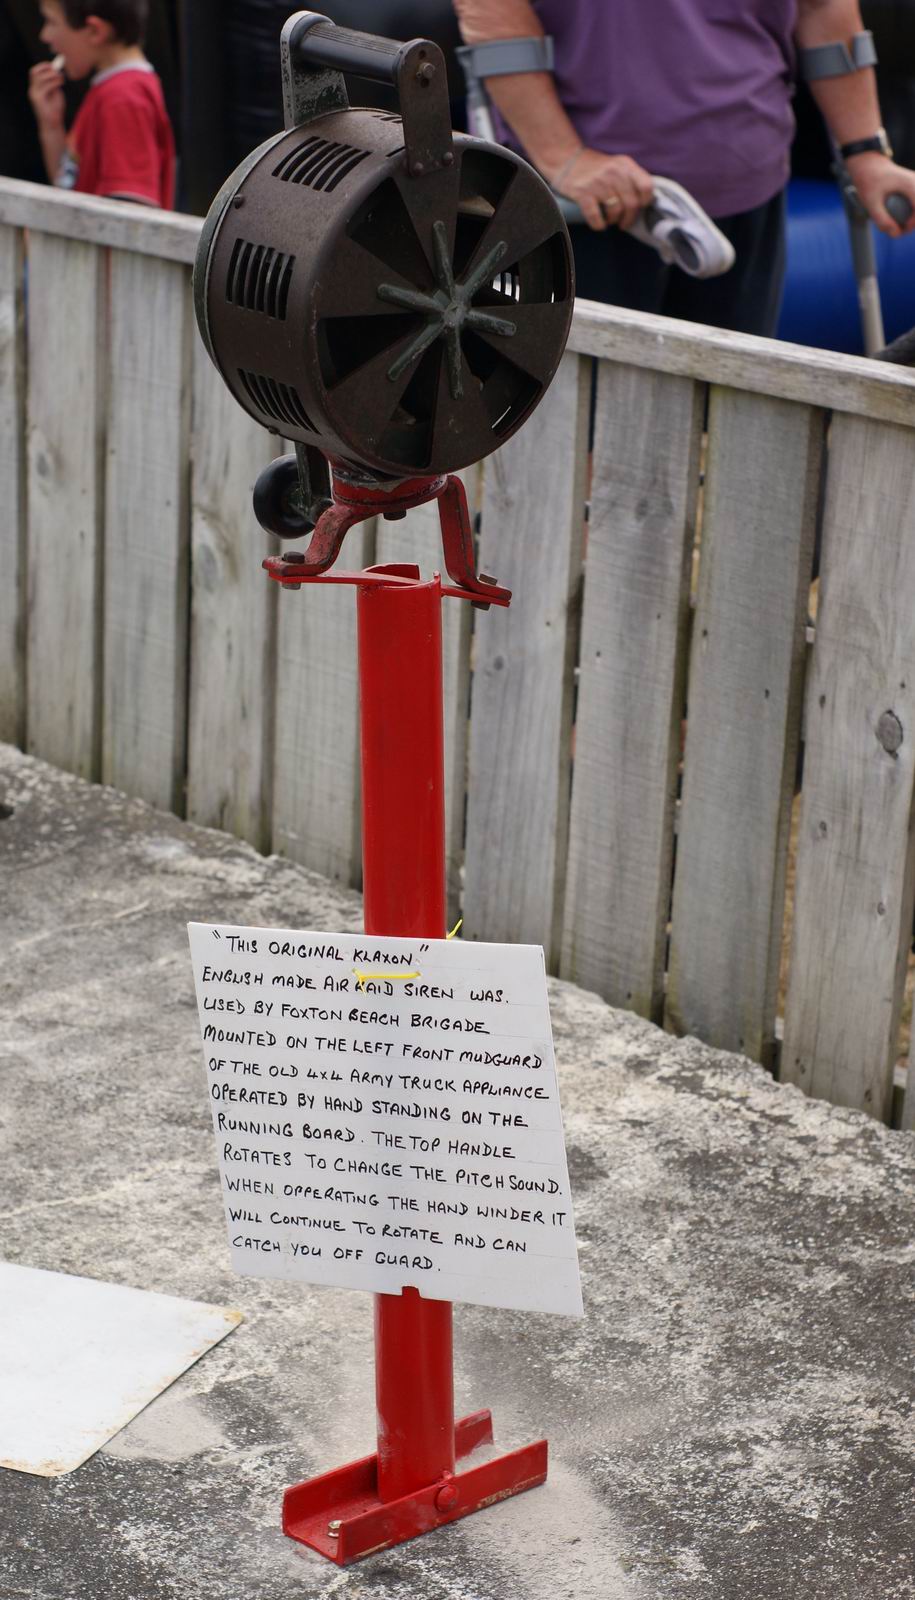 "THIS ORIGINAL KLAXON"
ENGLISH MADE AIR RAID SIREN WAS.
USED BY FOXTON BEACH BRIGADE
MOUNTED ON THE LEFT FRONT MUDGUARD
OF THE OLD 4x4 ARMY TRUCK APPLIANCE
OPERATED BY HAND STANDING ON THE
RUNNING BOARD. THE TOP HANDLE
ROTATES TO CHANGE THE PITCH SOUND.
WHEN OPPERATING THE HAND WINDER IT
WILL CONTINUE TO ROTATE AND CAN
CATCH YOU OFF GUARD.